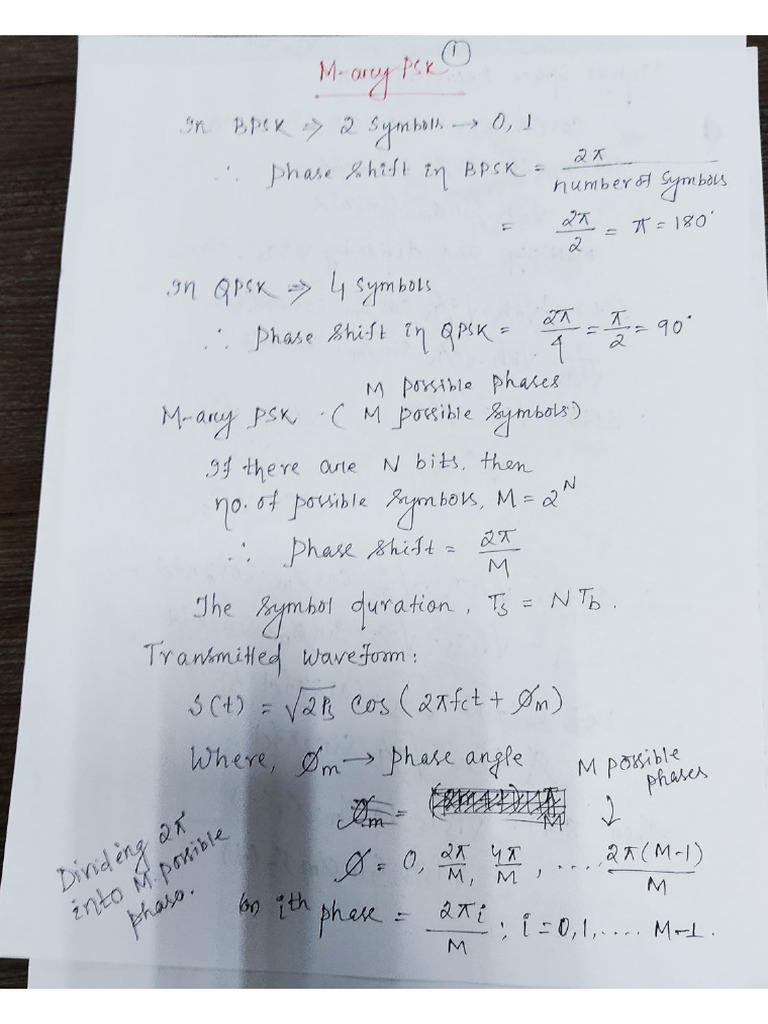 1
M-ary PSK
In BPSK ⇒ 2 Symbols → 0, 1
∴ Phase Shift in BPSK = 2π / number of Symbols
= 2π/2 = π = 180°
In QPSK ⇒ 4 Symbols
∴ Phase Shift in QPSK = 2π/4 = π/2 = 90°
M possible phases
M-ary PSK. ( M possible Symbols)
If there are N bits, then
no. of possible Symbols, M = 2^N
∴ Phase Shift = 2π/M
The Symbol duration, Ts = N Tb.
Transmitted waveform:
S(t) = √2Ps Cos (2πfct + Øm)
Where, Øm → phase angle
M possible phases ↓
Øm =
Ø = 0, 2π/M, 4π/M, .... 2π(M-1)/M
Dividing 2π
into M possible
phase.
ith phase = 2πi/M ; i = 0,1,.... M-1.